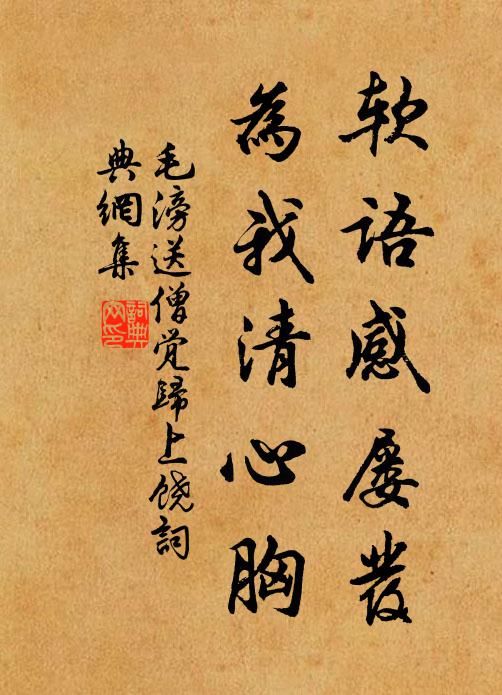 软语感屡发
為我清心胸
毛滂送僧觉歸上饶詞
典網集
詞典
网印